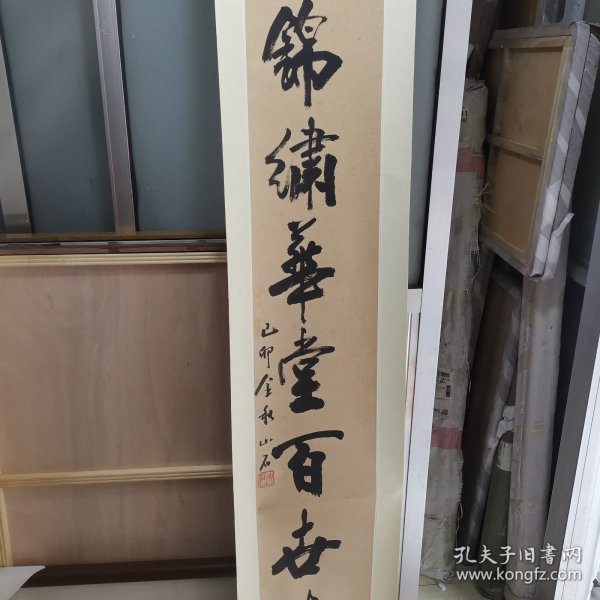 錦繡華堂百世
己卯金秋山石
孔夫子旧書网
www.kongfz.com